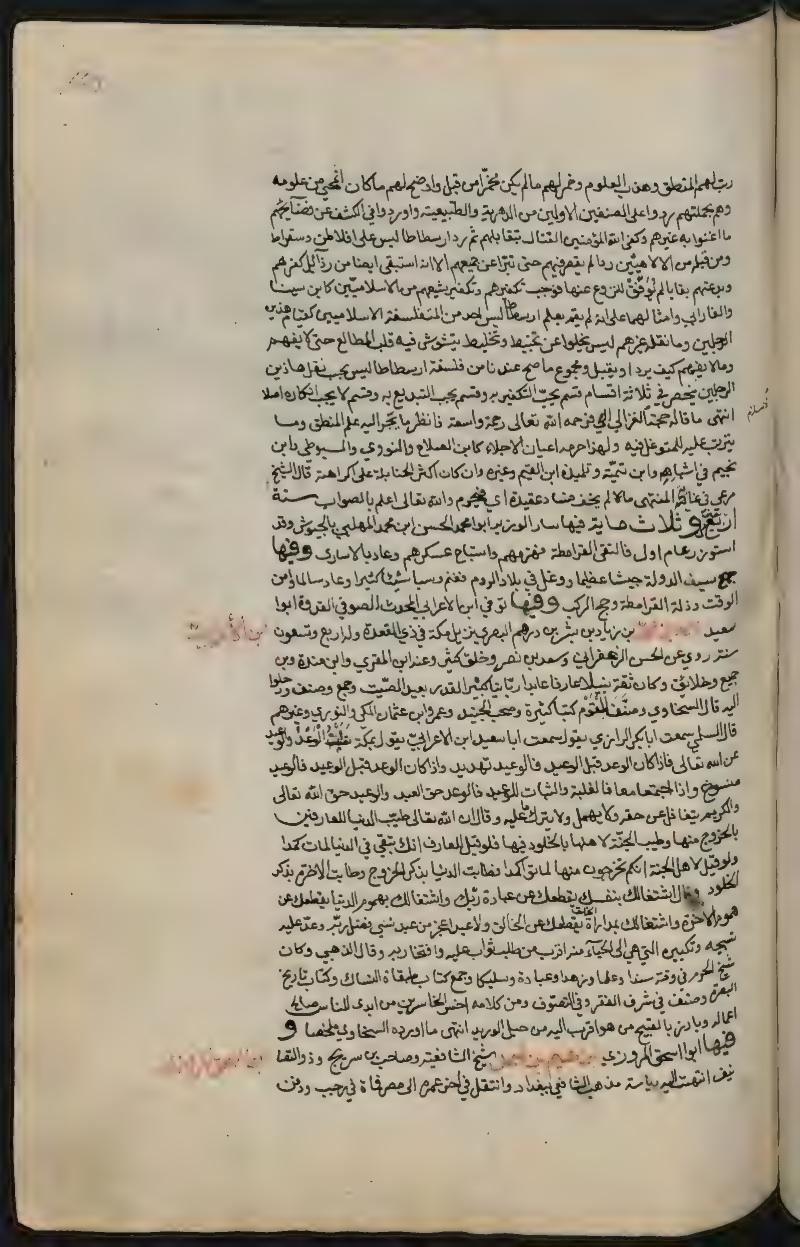 رتب لهم المنطق وهذب العلوم وخمر لهم مالم يكن مخمرا من قبل واوضح لهم ما كان انمحى من علومه
وهم بجملتهم ردوا على الصنفين الاولين من الدهرية والطبيعية واوردوا في الكشف عن فضايحهم
ما اغنوا به غيرهم وكفى الله المؤمنين القتال بتقابلهم ثم رد ارسطاطاليس على افلاطن وسقراط
ومن قبلم من الالاهيين ردا لم يقصر فيهم حتى تبرا عن جميعهم الا انه استبقى ايضا من رذائل كفرهم
وبدعتهم بقايا لم يوفق للنزوع عنها فوجب تكفيرهم وتكفير شيعهم من الاسلاميين كابن سينا
والفارابي وامثالهما على انه لم يقم بعلم ارسطاطاليس احد من المتفلسفة الاسلاميين كقيام هذين
الرجلين وما نقله غيرهم ليس يخلوا عن تخبيط وتخليط يتشوش فيه قلب المطالع حتى لا يفهم
وما لا يفهم كيف يرد او يقبل ومجموع ما صح عندنا من فلسفة ارسطاطاليس بحسب نقل هاذين
الرجلين ينحصر في ثلاثة اقسام قسم يجب التكفير به وقسم يجب التبديع به وقسم لا يجب انكاره اصلا
انتهى ما قاله حجة الغزالي فرحمه الله تعالى رحمة واسعة فانظر ما يجر اليه علم المنطق وما
يترتب عليه للمتوغل فيه ولهذا حرمه اعيان الاجلاء كابن الصلاح والنووي والسيوطي وابن
نجيم في اشباهه وابن تيمية وتلميذه ابن القيم وغيره وان كان اكثر الحنابلة على كراهته قال الشيخ
مرعي في غاية المنتهى مالم يخف فساد عقيدة اي فيحرم والله تعالى اعلم بالصواب سنة
اربعين وثلاث ماية فيها سار الوزير ابو محمد الحسن ابن محمد المهلبي بالجيوش وقد
استوزر عام اول فالتقى القرامطة فهزمهم واستباح عسكرهم وعاد بالاسارى وفيها
جمع سيف الدولة جيشا عظيما ووغل في بلاد الروم فغنم وسبا شيئا كثيرا وعاد سالما وامن
الوقت وذلة القرامطة وحج الركب وفيها توفي ابن الاعرابي المحدث الصوفي القدوة ابو
سعيد بن زياد بن بشر بن درهم البصري نزيل مكة في ذي القعدة وله اربع وتسعون
سنة روى عن الحسن الزعفراني وسعد بن نصر وخلق كثير وعنه ابن المقري وابن مندة وابن
جميع وخلائق وكان ثقة نبيلا عارفا عابدا ربانيا كبير القدر بعيد الصيت وجمع وصنف ورحلوا
اليه قال السخاوي وصنف للقوم كتبا كثيرة وصحب الجنيد وعمرو ابن عثمان المكي والنوري وغيرهم
قال السلمي سمعت ابا بكر الرازي يقول سمعت ابا سعيد ابن الاعرابي يقول بمكة ثبت الوعد والوعيد
عن الله تعالى فاذا كان الوعد قبل الوعيد فالوعيد تهديد واذا كان الوعد قبل الوعيد فالوعيد
منسوخ واذا اجتمعا معا فالغلبة والثبات للوعد فالوعد حق العبد والوعيد حق الله تعالى
والكريم يتغافل عن حقه ولا يهمل ولا يترك ما عليه وقال ان الله تعالى طيب الدنيا للعارفين
بالخروج منها وطيب الجنة لاهلها بالخلود فيها فلو قيل للعارف انك تبقى في الدنيا لمات كمدا
ولو قيل لاهل الجنة انكم تخرجون منها لماتوا كمدا فطابت الدنيا بذكر الخروج وطابت الاخرة بذكر
الخلود وقال اشتغالك بنفسك يقطعك عن عبادة ربك واشتغالك بهموم الدنيا يقطعك عن
هموم الاخرة واشتغالك بمداراة الخلق يقطعك عن الخالق ولا عبد اعجز من عبد نسي فضل ربه وعد عليه
تسبيحه وتكبيره التي هي الى الحياء منه اقرب من طلب ثواب عليه وافتخار به وقال الذهبي وكان
شيخ الحرم في وقته سندا وعلما وزهدا وعبادة وتسليكا وجمع كتاب طبقاة النساك وكتاب تاريخ
البصرة وصنف في شرف الفقر وفي التصوف ومن كلامه اخسر الخاسرين من ابدى للناس صالح
اعماله وبارز بالقبيح من هو اقرب اليه من حبل الوريد انتهى ما اورده السخاوي ملخصا و
فيها ابو اسحق المروزي ابرهيم بن احمد شيخ الشافعية وصاحب بن سريج وذو التصا
نيف انتهت اليه رياسة مذهب الشافعي ببغداد وانتقل في اخر عمره الى مصر فمات في رجب ودفن